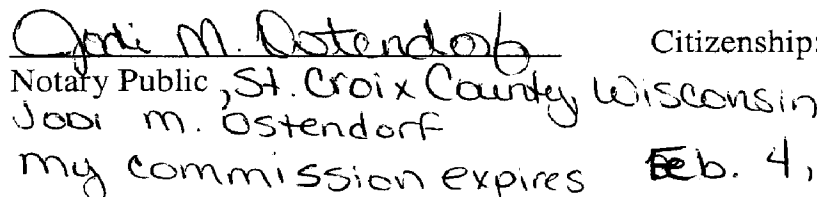 Jodi M. Ostendorf Citizenship:
Notary Public, St. Croix County, Wisconsin
Jodi m. Ostendorf
my commission expires Feb. 4,